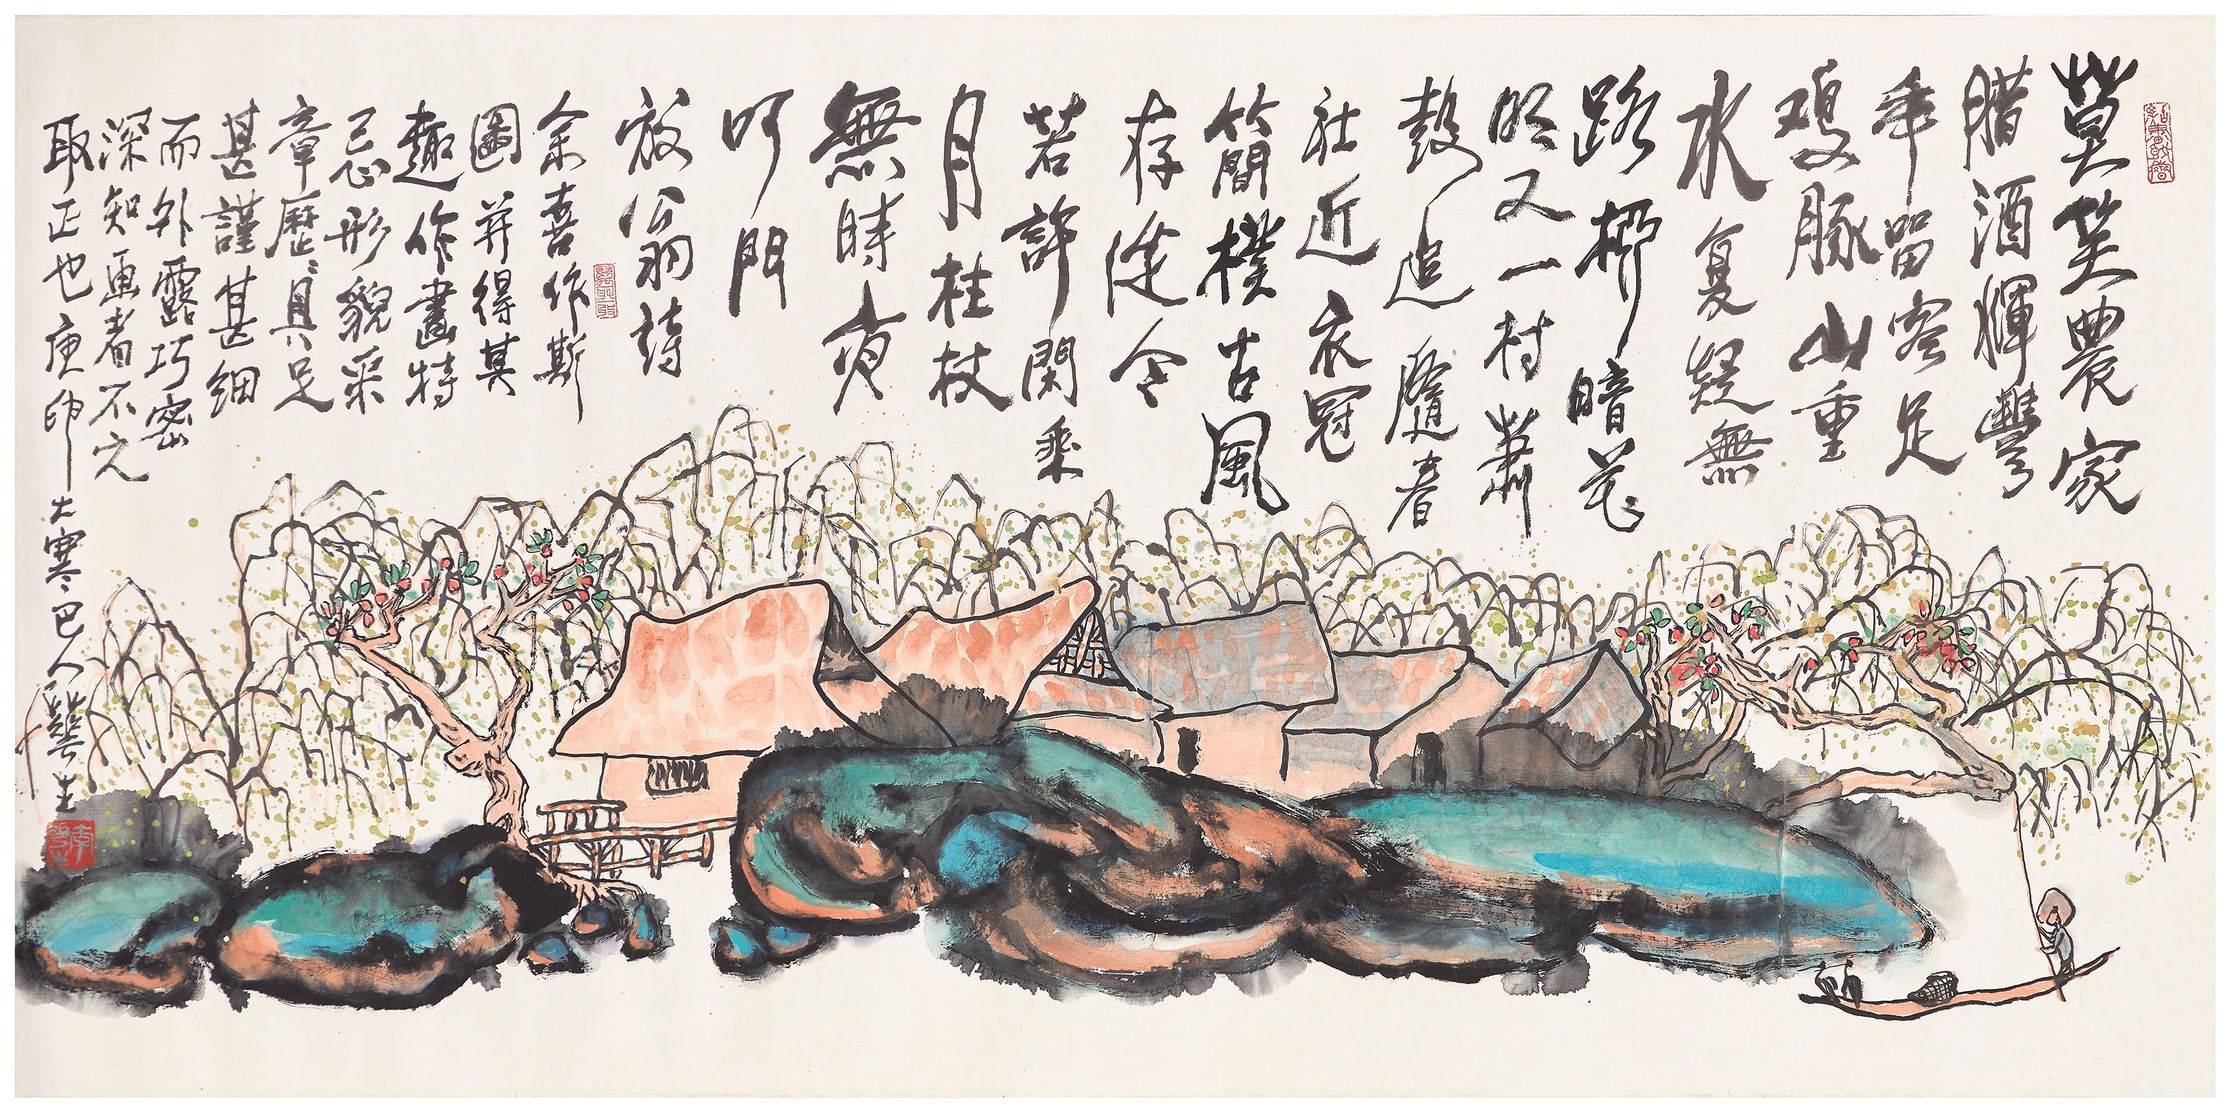 莫笑農家
腊酒渾豐
年留客足
鸡豚山重
水复疑無
路柳暗花
明又一村蕭
鼓追隨春
社近衣冠
簡樸古風
存從今
若許閑乘
月柱杖
無時夜
叩門
放翁詩
余喜作斯
圖并得其
趣作畫特
忌形貌采
章歷々具足
甚謹甚細
而外露巧密
深知画者不
取正也庚申大寒巴人華生